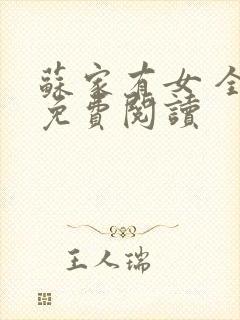 蘇家有女 全
免費閱讀
王人瑞